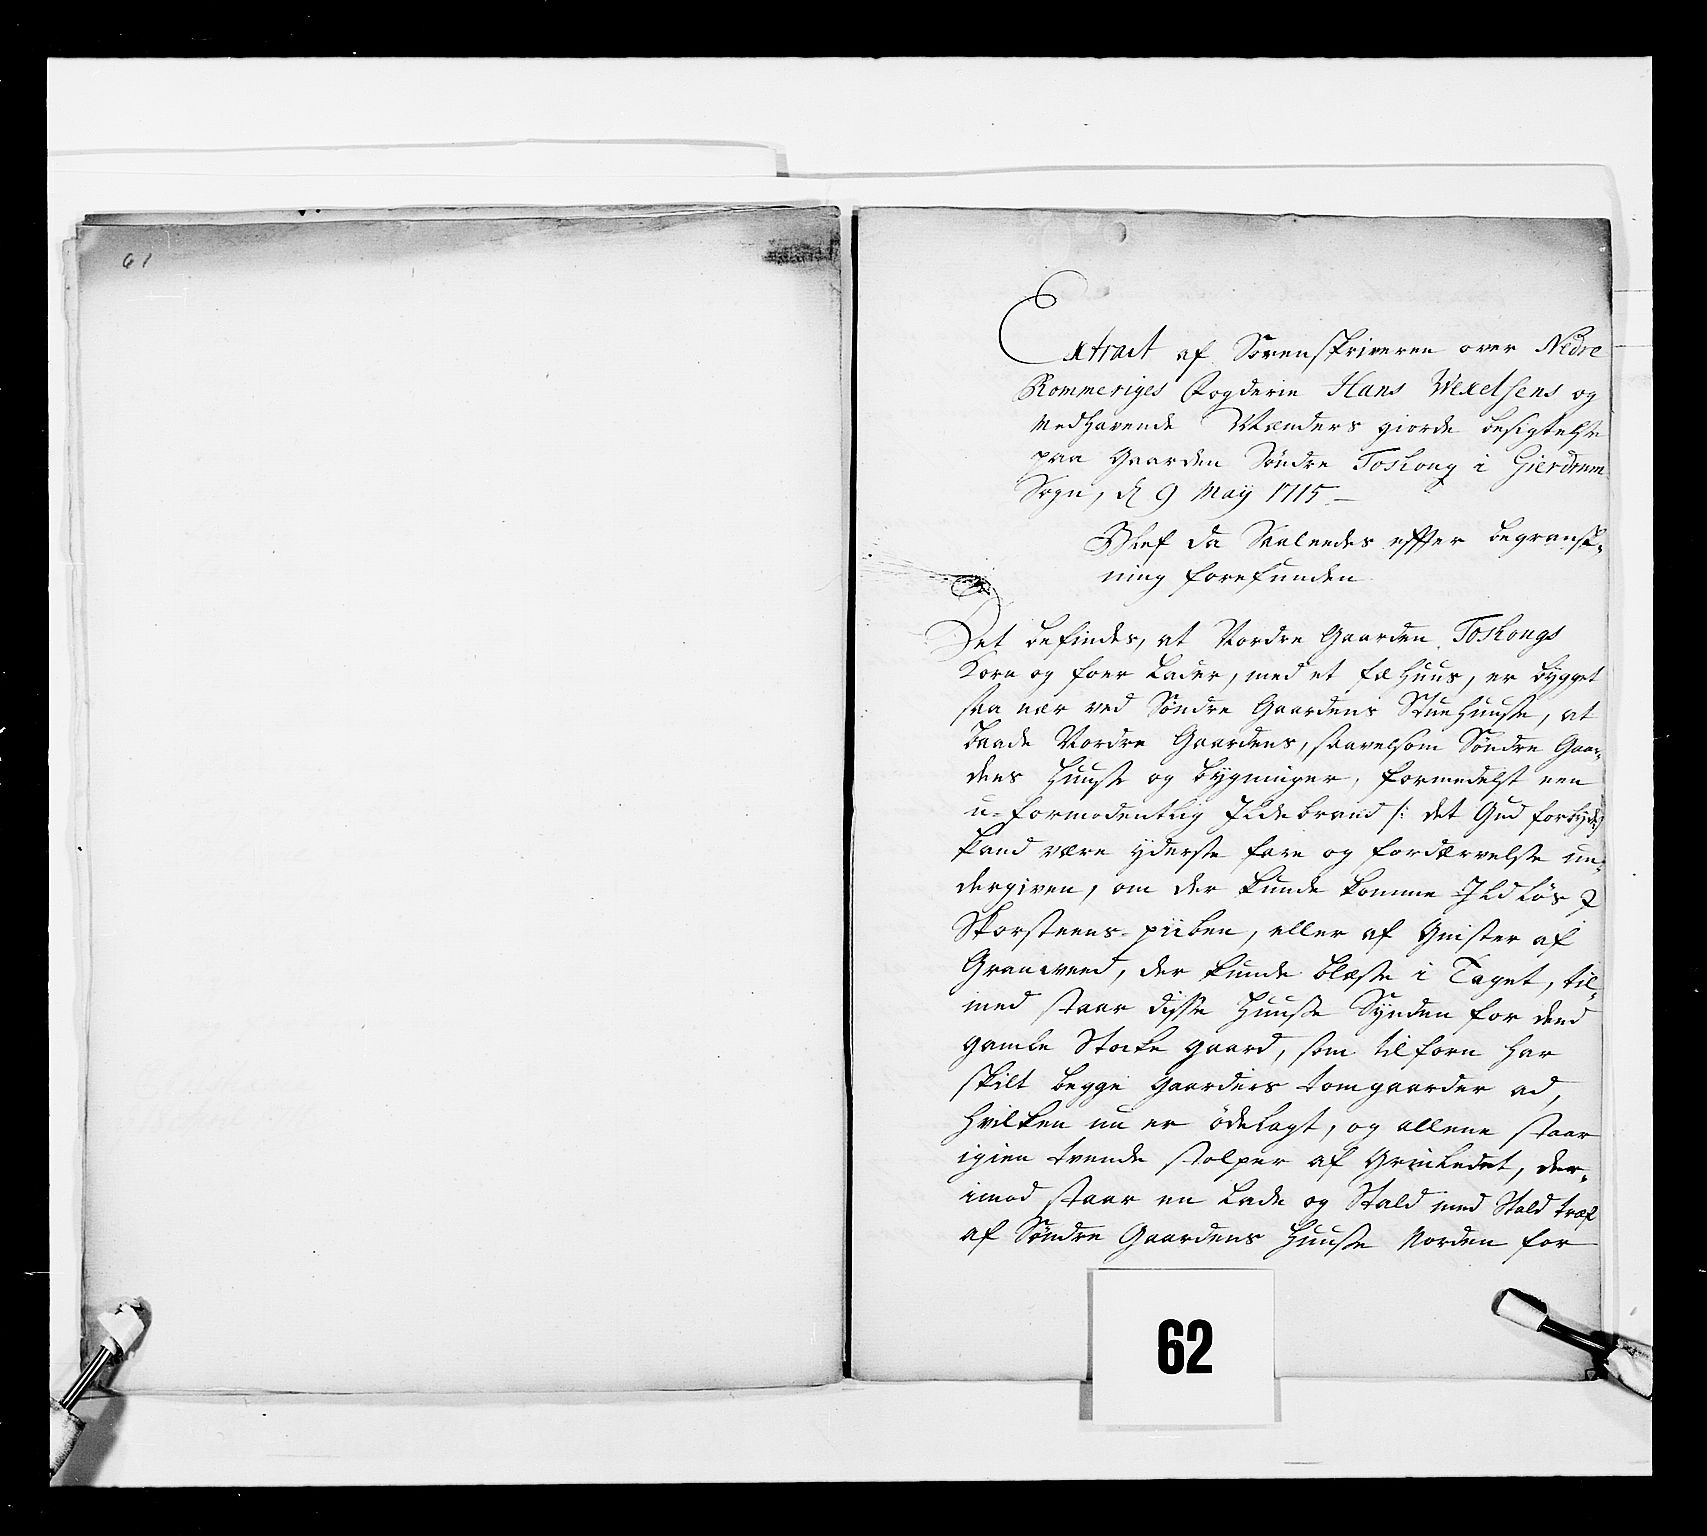 61
Extract af Sorenskriveren over Nedre
Rommeriges Fogderie Hans Wexelsens og
Medhavende Mænders giorde besigtelse
paa Gaarden Søndre Toskong i Gierdrum
Sogn, d 9 Maÿ 1715
Blef da Saaleedes effter begransk-
ning forefunden
Det befindes, at Nordre Gaarden Toskongs
Korn og foer Lader, med et fæ Huus, er bÿgget
saa nær ved Søndre Gaardens StueHuuse, at
baade Nordre Gaardens, saavelsom Søndre Gaar-
dens Huuse og bÿgninger, formedelst een
u-formodentlig Ildebrand /: det Gud forbÿde /
kand være yderste fare og fordærvelse un-
dergiven, om der kunde komme Ild Løs i
Skorsteens-piiben, eller af Gnister af
Granveed, der kunde blæse i Taget, til-
med staar disse Huuse Synden for dend
gamle Stocke gaard, som tilforn har
skilt begge Gaarders tomgaarder ad,
hvilken nu er ødelagt, og allene staar
igien tvende stolper af Grinledet, der-
imod staar en Lade og Stald med Stald træf
af Søndre Gaardens Huuse Norden for
62